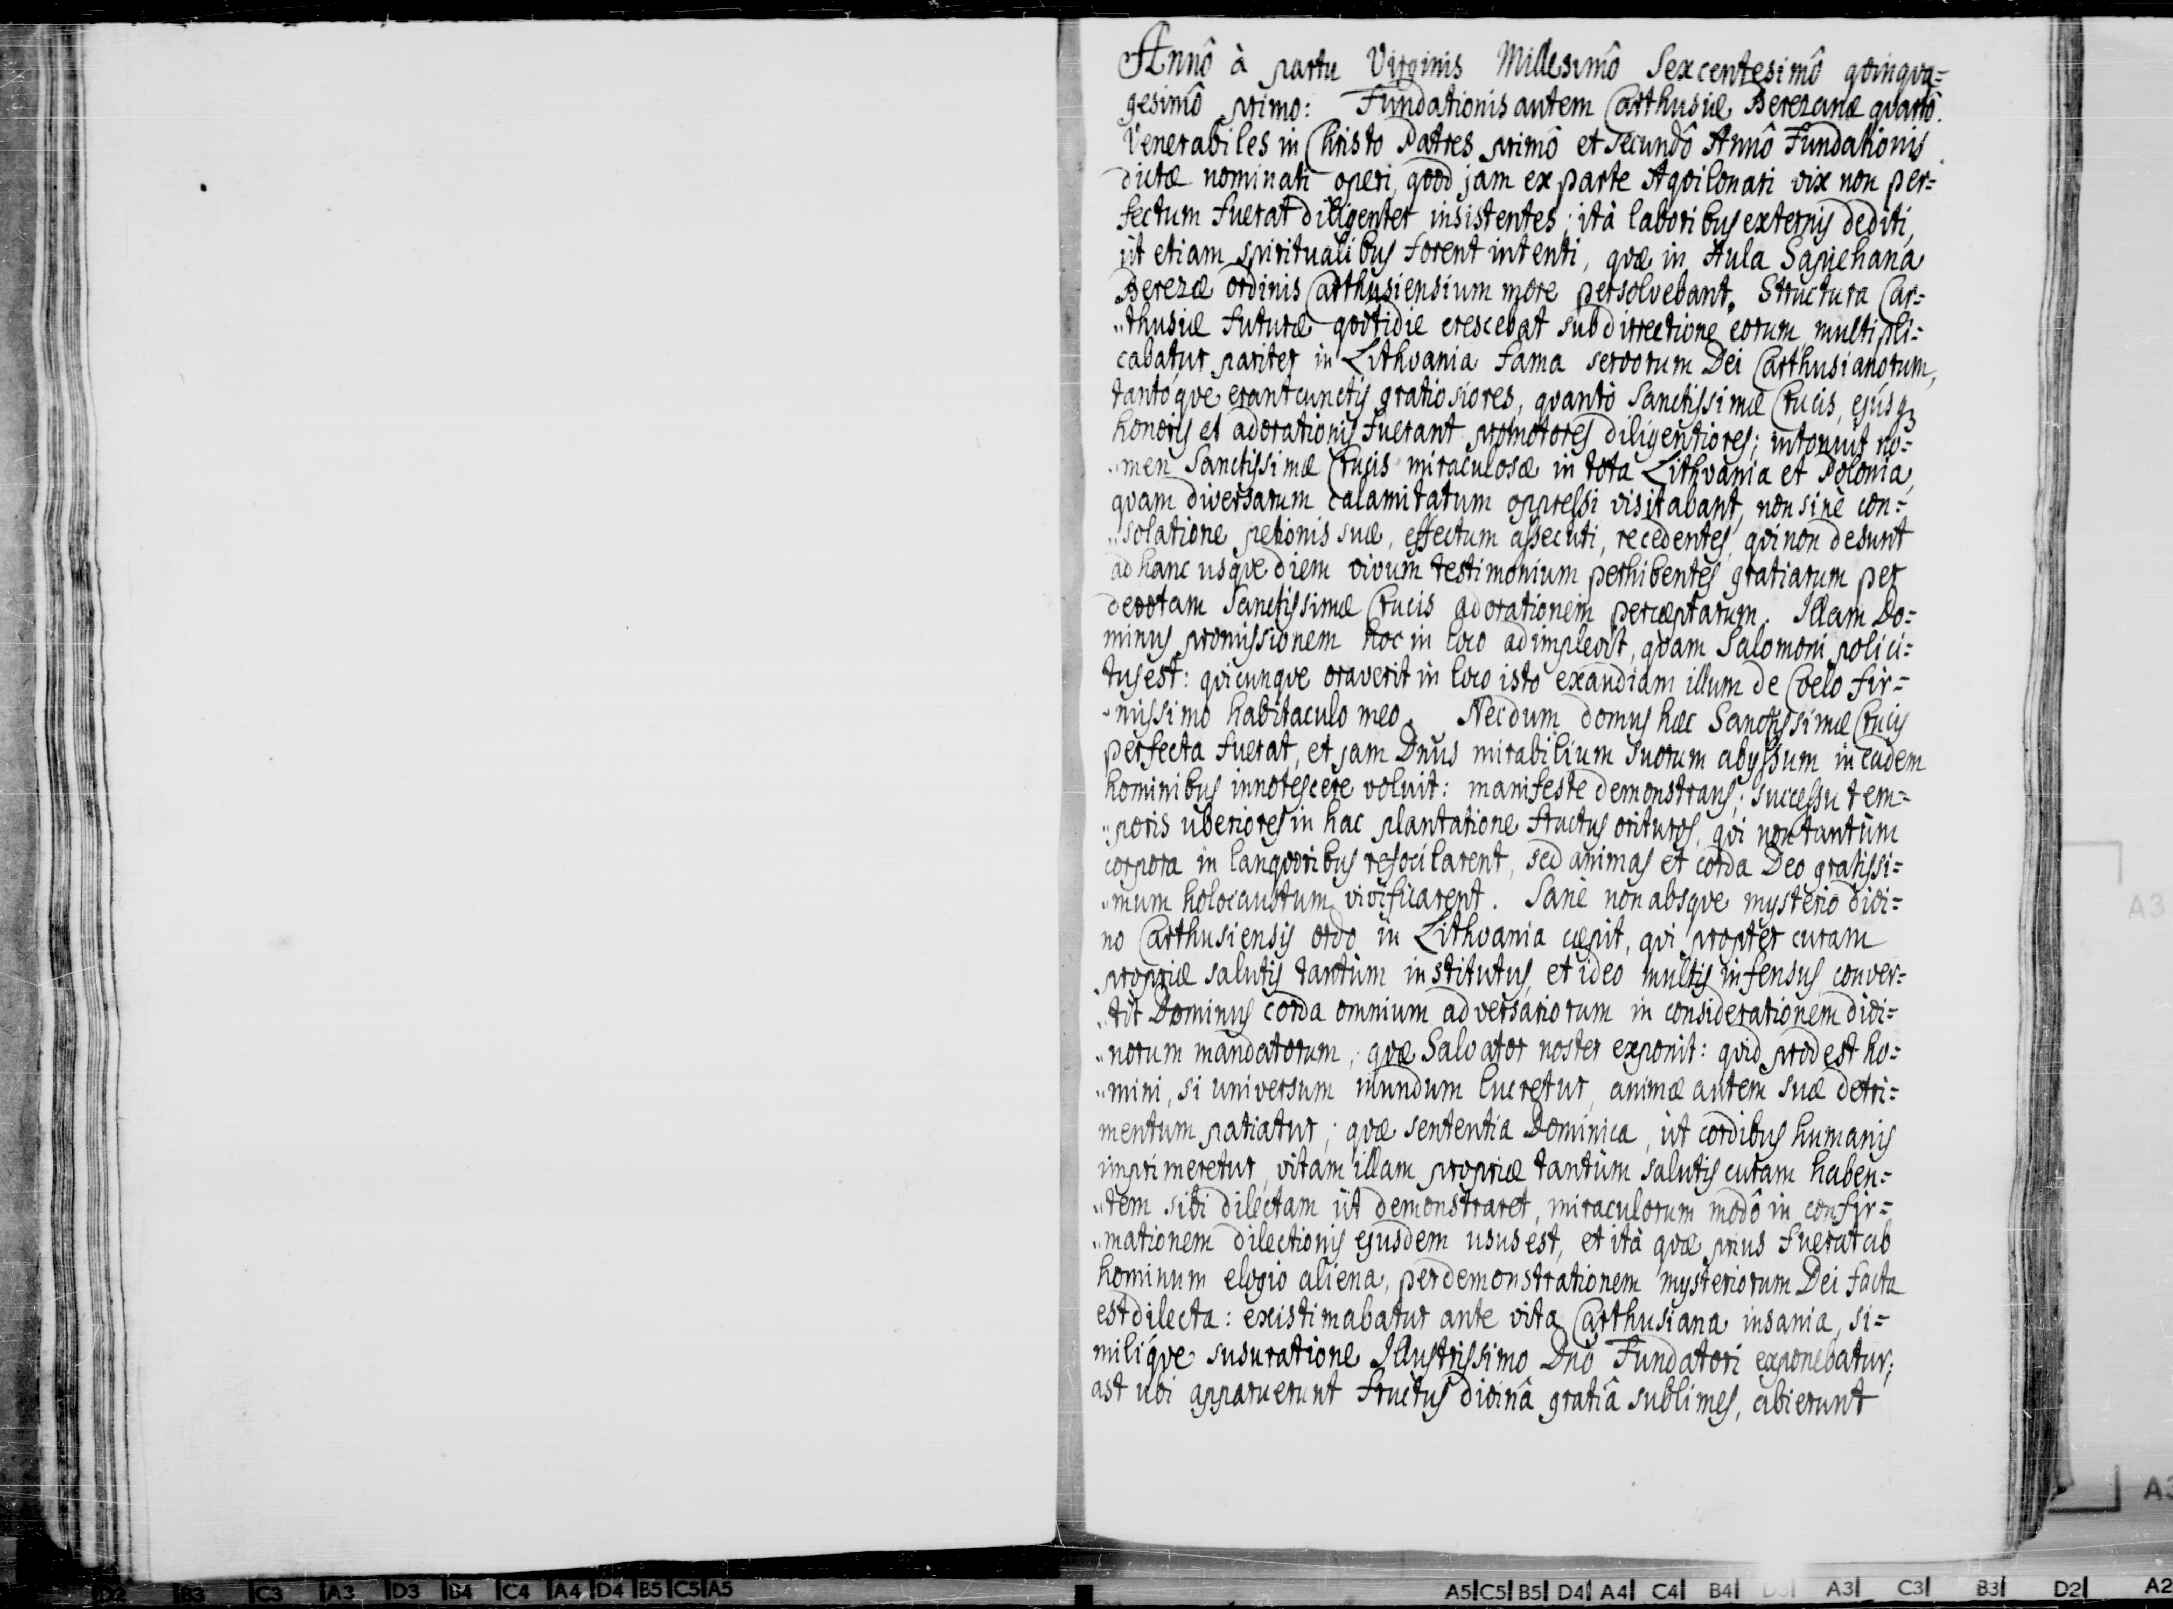 Annô à partu Virginis Millesimô Sexcentesimô qvinqva=
gesimô primo: Fundationis autem Carthusiæ Berezanæ qvartô.
Venerabiles in Christo Patres primô et secundô Annô Fundationis
dictæ nominati operi, qvod jam ex parte Aqvilonari vix non per=
fectum fuerat diligenter insistentes; ità laboribus externis dediti,
ùt etiam spiritualibus forent intenti, qvæ in Aula Sapiehana
Berezæ ordinis Carthusiensium more persolvebant. Structura Car=
thusiæ futuræ qvotidie crescebat sub dirrectione eorum, multipli=
cabatur pariter in Lithvania fama servorum Dei Carthusianorum,
tantóqve erant cunctis gratiosiores, qvantò Sanctissimæ Crucis, ejúsqȝ
honoris et adorationis fuerant promotores diligentiores; intonuit no=
men Sanctissimæ Crucis miraculosæ in tota Lithvania et Polonia,
qvam diversarum calamitatum oppressi visitabant, non sinè con=
solatione petionis suæ, effectum assecuti, recedentes, qvi non desunt
ad hanc usqve diem vivum testimonium perhibentes gratiarum per
devotam Sanctissimæ Crucis adorationem perceptarum. Illam Do=
minus promissionem hoc in loco adimplevit, qvam Salomoni polici=
tus est: qvicunqve oraverit in loco isto exaudiam illum de Coelo fir=
missimo habitaculo meo. Necdum domus hæc Sanctissimæ Crucis
perfecta fuerat, et jam Dnus mirabilium suorum abyssum in eadem
hominibus innotescere voluit: manifeste demonstrans, successu tem=
poris uberiores in hac plantatione fructus orituros, qvi non tantùm
corpora in langvoribus refocilarent, sed animas et corda Deo gratissi=
mum holocaustum vivificarent. Sanè non absqve mysterio divi=
no Carthusiensis ordo in Lithvania cæpit, qvi propter curam
propriæ salutis tantùm institutus, et ideo multis infensus, conver=
tit Dominus corda omnium adversariorum in considerationem divi=
norum mandatorum, qvæ Salvator noster exponit: qvid prodest ho=
mini, si universum mundum lucretur, animæ autem suæ detri=
mentum patiatur; qvæ sententia Dominica, ùt cordibus humanis
imprimeretur, vitam illam propriæ tantùm salutis curam haben=
tem sibi dilectam ùt demonstraret, miraculorum modô in confir=
mationem dilectionis ejusdem usus est, et ità qvæ prius fuerat ab
hominum elogio aliena, per demonstrationem mysteriorum Dei facta
est dilecta: existimabatur ante vita Carthusiana insania, si=
milíqve susuratione Illustrissimo Dnô Fundatori exponebatur;
ast ubi apparuerunt fructus divinâ gratiâ sublimes, abierunt